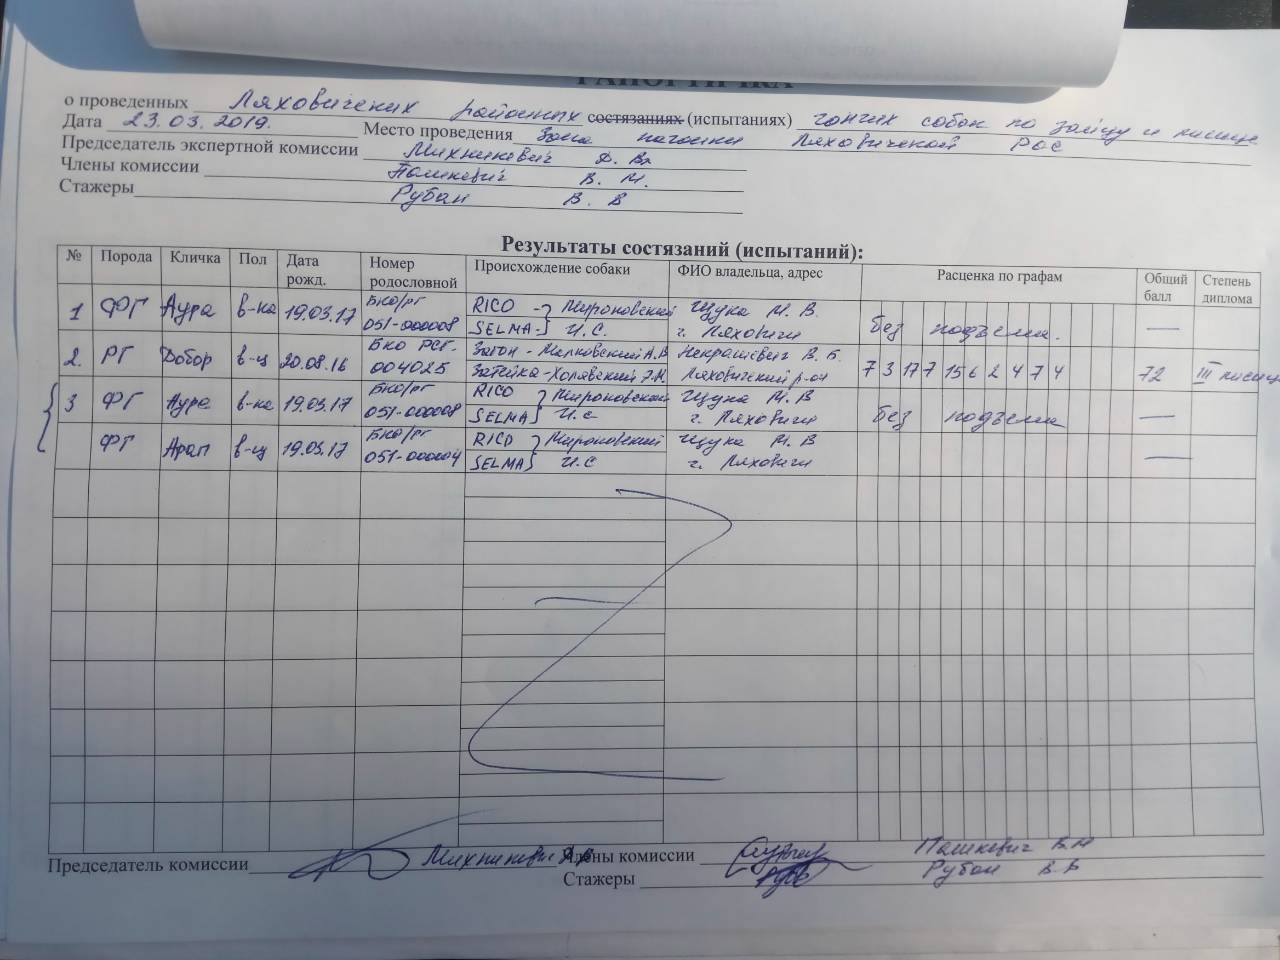 РАПОРТИЧКА
о проведенных Ляховичских районных состязаниях (испытаниях) гончих собак по зайцу и лисице
Дата 23.03.2019г. Место проведения Зона нагонки Ляховичской РОС
Председатель экспертной комиссии Михникевич Д. Вл
Члены комиссии Пашкевич В. М.
Стажеры Рубан В. В
Результаты состязаний (испытаний):
№ Порода Кличка Пол Дата рожд. Номер родословной Происхождение собаки ФИО владельца, адрес Расценка по графам Общий балл Степень диплома
1 ФГ Аура в-ка 19.03.17 БКО/РГ 051-000008 RICO - SELMA - } Мироновский И.С. Щука М. В. г. Ляховичи без подъема. —
2. РГ Добор в-ц 20.08.16 БКО РСГ. 004025 Загон - Малковский А.В Затейка - Холявский Некрашевич В. Б. Ляховичский р-он 7 3 17 7 15 6 2 4 7 4 72 III лисица
3 ФГ Аура в-ка 19.03.17 БКО/РГ 051-000008 RICO SELMA } Мироновский И.С Щука М. В г. Ляховичи без подъема —
ФГ Арап в-ц 19.03.17 БКО/РГ 051-000004 RICO SELMA } Мироновский И.С Щука М. В г. Ляховичи —
Председатель комиссии Михникевич Члены комиссии Пашкевич В.М
Стажеры Рубан В.В